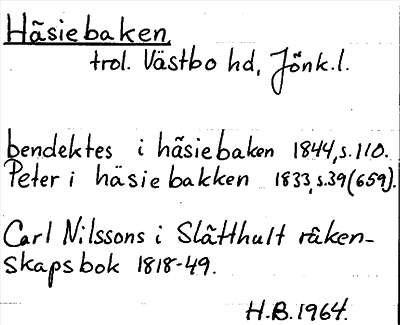 Häsiebaken
trol. Västbo hd, Jönk.l.
bendektes i häsiebaken 1844, s.110.
Peter i häsiebakken 1833, s.39(659).
Carl Nilssons i Slätthult räken-
skapsbok 1818-49.
H.B.1964.